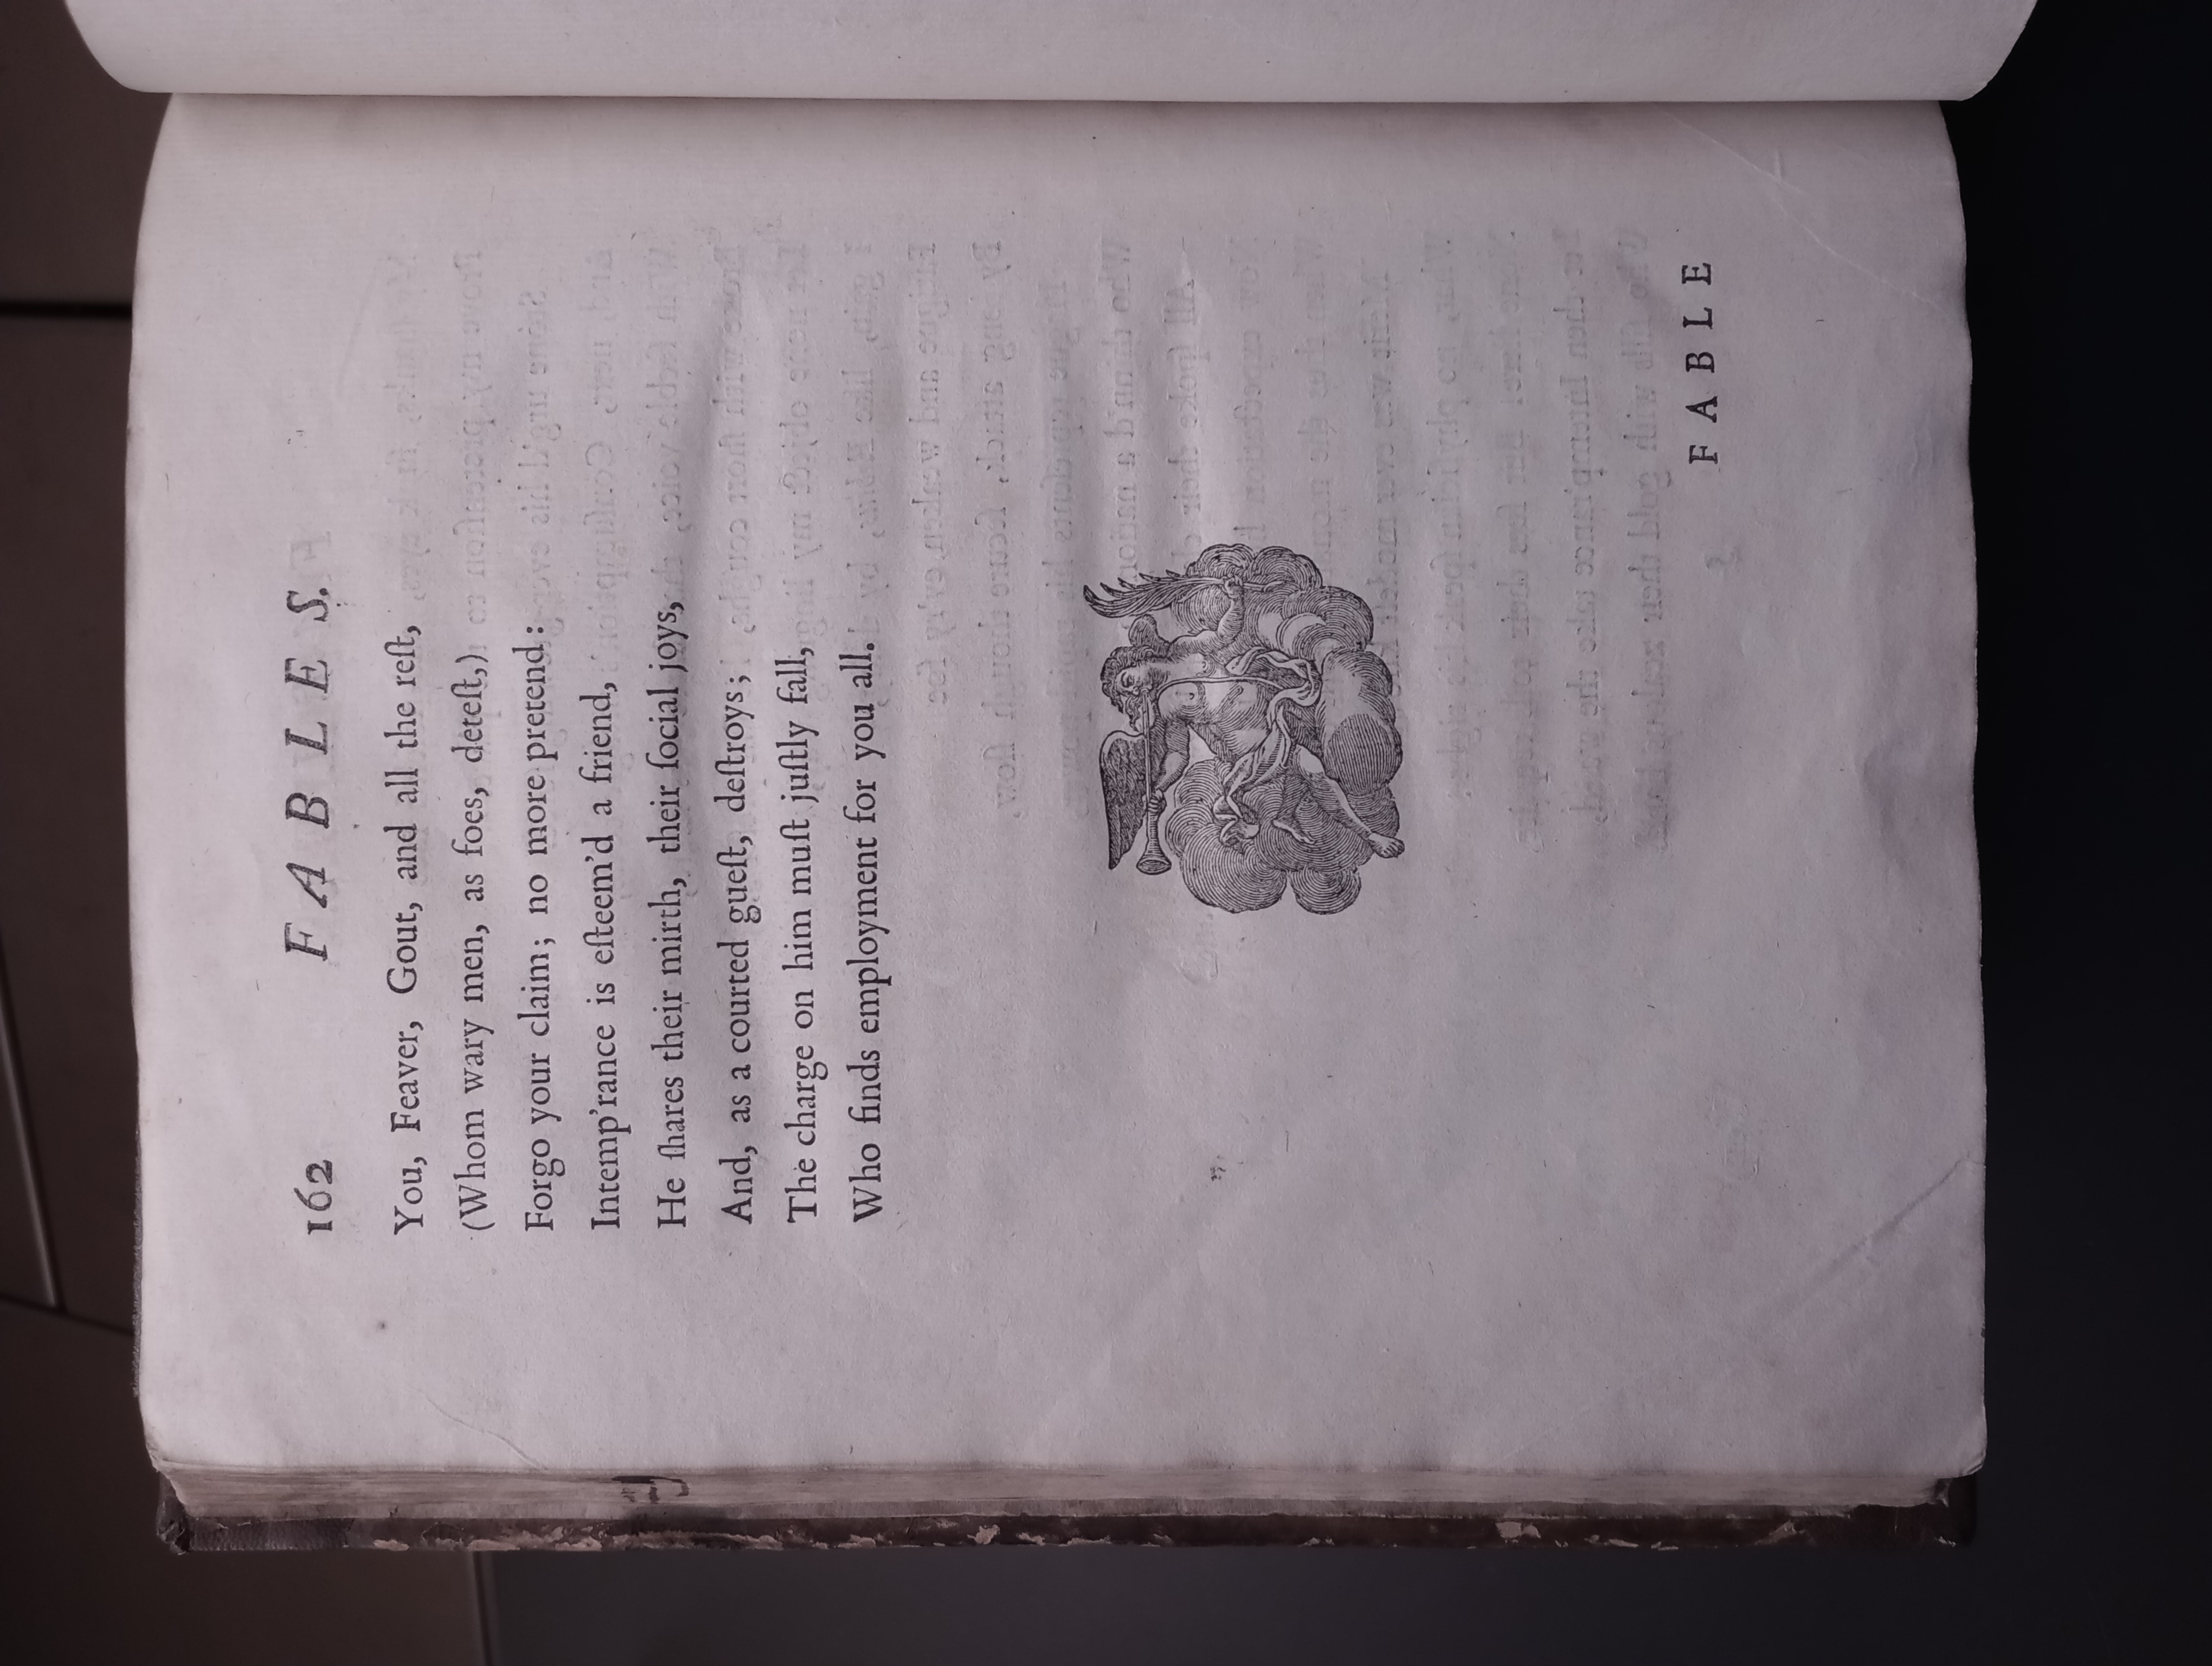 162 FABLES.
You, Feaver, Gout, and all the reſt,
(Whom wary men, as foes, deteſt,)
Forgo your claim; no more pretend:
Intemp'rance is eſteem'd a friend,
He ſhares their mirth, their ſocial joys,
And, as a courted gueſt, deſtroys;
The charge on him muſt juſtly fall,
Who finds employment for you all.
FABLE